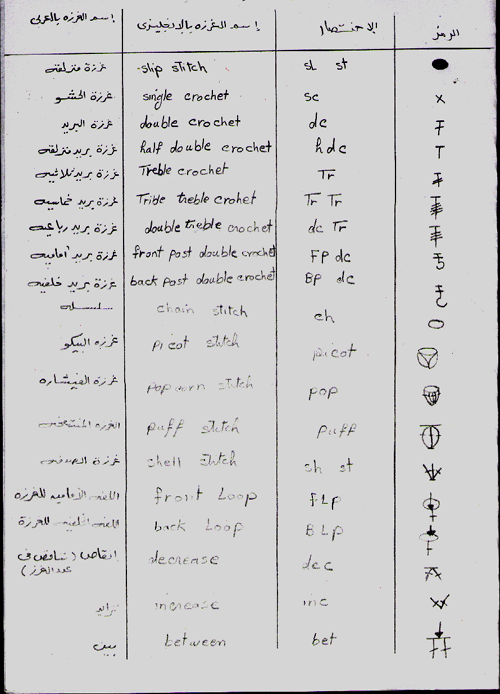 إسم الغرزه بالعربى إسم الغرزه بالإنجليزى الإختصار الرمز
غرزة منزلقه slip stitch sL st
غرزة الحشو single crochet sc x
غرزة البريد double crochet dc
غرزة بريد منزلقه half double crochet hdc T
غرزة بريد ثلاثيه Treble crochet Tr
غرزة بريد خماسيه treble crohet Tr Tr
غرزة بريد رباعيه double treble crochet dc Tr
غرزة بريد أماميه front post double crochet FP dc
غرزة بريد خلفيه back post double crochet BP dc
سلسله chain stitch ch
غرزه البيكو picot stitch picot
غرزة الفيشاره popcorn stitch pop
الغرزه puff stitch puff
غرزة الصدفه shell stitch sh st
اللفه الأماميه للغرزه front Loop FLp
اللفه الخلفيه للغرزة back Loop BLp
إنقاص (تناقص فى decrease dec
عدد الغرز)
تزايد increase inc
بين between bet